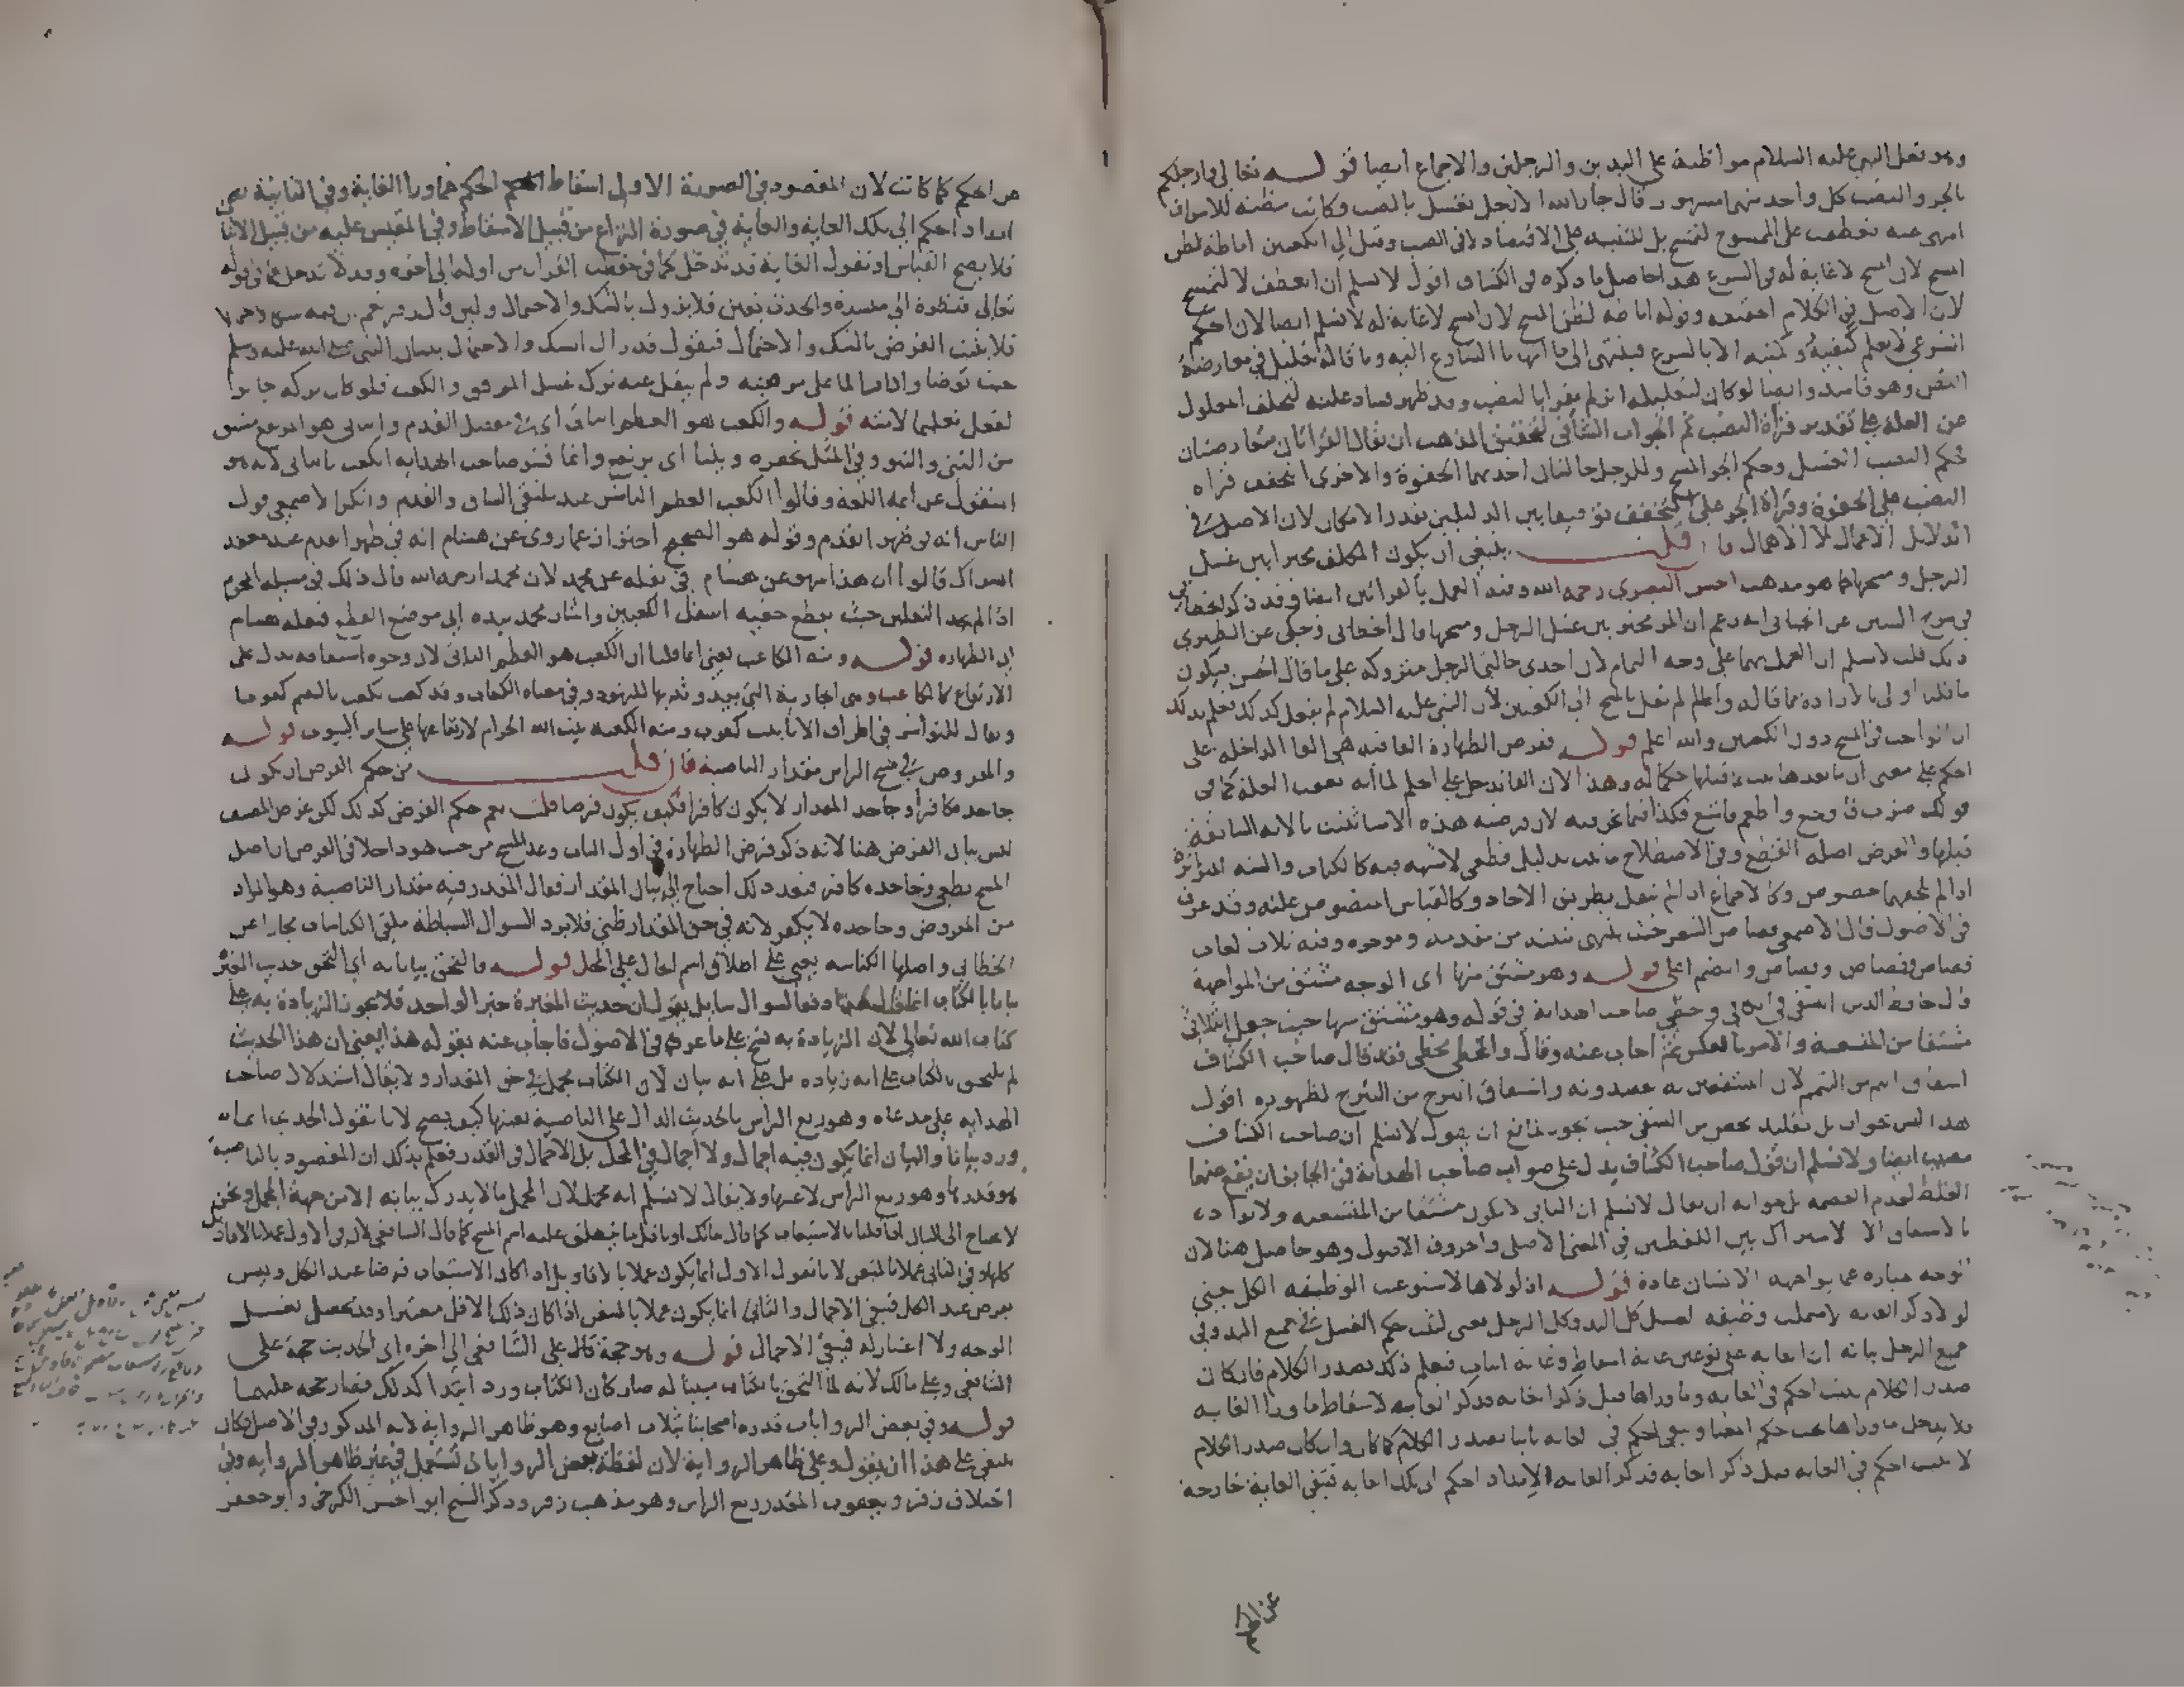 وهو نقل النبي عليه السلام مواظبة على اليدين والرجلين والاجماع ايضا قوله تعالى وارجلكم
بالجر والنصب كل واحد منهما مشهور قال جار الله الارجل تغسل بالصب وكانت مظنة للاسراف
المنهى عنه فعطف على الممسوح لا لتمسح بل للتنبيه على الاقتصاد في الصب وقيل الى الكعبين اماطة لظن
المسح لان المسح لا غاية له في الشرع هذا حاصل ما ذكره في الكشاف اقول لا نسلم ان العطف لا لتمسح
لان الاصل في الكلام الحقيقة وقوله اماطة لظن المسح لان المسح لا غاية له لا نسلم ايضا لان الحكم
الشرعي لا يعلم كيفيته وكميته الا بالشرع فينتهى الى ما انهاه الشارع اليه وما قاله تعليل في معارضة
النص وهو فاسد وايضا لو كان لتعليله اثر لم يقرا بالنصب وقد ظهر فساد علته لتخلف المعلول
عن العلة على تقدير قراة النصب ثم الجواب الشافي لتحقيق المذهب ان يقال القراتان متعارضتان
فحكم النصب الغسل وحكم الجر المسح وللرجل حالتان احديهما الحفوة والاخرى التخفف قراة
النصب على الحفوة وقراة الجر على التخفف توفيقا بين الدليلين بقدر الامكان لان الاصل في
الدلايل الاعمال لا الاهمال فان قلت ينبغي ان يكون المكلف مخيرا بين غسل
الرجل ومسحها كما هو مذهب الحسن البصري رحمه الله وفيه العمل بالقراتين ايضا وقد ذكر الخطابي
في شرح السنن عن الجبائي انه زعم ان المرء مخير بين غسل الرجل ومسحها قال الخطابي وحكى عن الطبري
ذلك قلت لا نسلم ان العمل بهما على وجه التمام لان احدى حالتي الرجل متروكة على ما قال الحسن فيكون
ما قلنا اولى بالارادة مما قاله واعلم لم يقل بالمسح الى الكعبين لان النبي عليه السلام لم يفعل كذلك فعلم بذلك
ان الواجب في المسح دون الكعبين والله اعلم قوله ففرض الطهارة الفا فيه هي الفا الداخلة على
الحكم على معنى ان ما بعدها يثبت بما قبلها حكما له وهذا لان الفا تدخل على الحكم لما انه يعقب العلة كما في
قولك ضرب فاوجع واطعم فاشبع فكذا فيما نحن فيه لان فرضية هذه الاشيا ثبتت بالاية السابقة
قبلها والفرض اصله القطع وفي الاصطلاح ما ثبت بدليل قطعي لا شبهة فيه كالكتاب والسنة المتواترة
اذا لم يلحقهما خصوص وكالاجماع اذا لم ينقل بطريق الاحاد وكالقياس المنصوص علته وقد عرف
في الاصول قال الاصمعي قصاص الشعر حيث ينتهى نبته من مقدمه وموخره وفيه ثلاث لغات
قصاص وقصاص وقصاص والضم اعلى قوله وهو مشتق منها اى الوجه مشتق من المواجهة
قال حافظ الدين النسفي في الكافي وخطي صاحب الهداية في قوله وهو مشتق منها حيث جعل الثلاثي
مشتقا من المنشعبة والامر بالعكس ثم اجاب عنه وقال والمخطي مخطي فقد قال صاحب الكشاف
اشتقاق اليم من التيمم لان المستنفعين به يقصدونه واشتقاق البرج من التبرج لظهوره اقول
هذا ليس بجواب بل تقليد محض من النسفي حيث يجوز لمانع ان يقول لا نسلم ان صاحب الكشاف
مصيب ايضا ولا نسلم ان قول صاحب الكشاف يدل على صواب صاحب الهداية فمن الجايز ان يقع منهما
الغلط لعدم العصمة بل جوابه ان يقال لا نسلم ان الثلاثي لا يكون مشتقا من المنشعبة ولا يراد
بالاشتقاق الا الاشتراك بين اللفظين في المعنى الاصلي والحروف الاصول وهو حاصل هنا لان
الوجه عبارة عما يواجهه الانسان عادة قوله اذ لولاها لاستوعب الوظيفة الكل يعني
لولا ذكر الغاية لاشملت وظيفة الغسل كل اليد وكل الرجل يعنى لثبت حكم الغسل في جميع اليد وفي
جميع الرجل بيانه ان الغاية على نوعين غاية اسقاط وغاية اثبات فيعلم ذلك بصدر الكلام فان كان
صدر الكلام يثبت الحكم في الغاية وما وراها قبل ذكر الغاية فذكر الغاية لاسقاط ما ورا الغاية
فلا يدخل ما وراها تحت حكم الغاية وبقى الحكم في الغاية ثابتا بصدر الكلام كما كان وان كان صدر الكلام
لا يثبت الحكم في الغاية قبل ذكر الغاية فذكر الغاية لامتداد الحكم الى تلك الغاية فتبقى الغاية خارجة
عن الحكم كما كانت لان المقصود في الصورة الاولى اسقاط الحكم عما ورا الغاية وفي الثانية
امتداد الحكم الى تلك الغاية والغاية في صورة النزاع من قبيل الاسقاط وفي المقيس عليه من قبيل الاثبات
فلا يصح القياس او نقول الغاية قد تدخل كما في حفظت القران من اوله الى اخره وقد لا تدخل كما في قوله
تعالى فنظرة الى ميسرة والحدث يقين فلا يزول بالشك والاحتمال وليس قال زفر رحمه الله
فلا يثبت الفرض بالشك والاحتمال فيقول قد زال الشك والاحتمال ببيان النبي صلى الله عليه وسلم
حيث توضا وادار الما على مرفقيه ولم ينقل عنه ترك غسل المرفق والكعب فلو كان تركه جايزا
لفعل تعليما لامته قوله والكعب هو العظم الناتي اى في مفصل القدم والناتي هو المرتفع مشتق
من النتي والنتو وفي المثل تحقره وينتا اى يرتفع وانما فسر صاحب الهداية الكعب بالناتي لانه هو
المنقول عن ايمة اللغة وقالوا الكعب العظم الناشز عند ملتقى الساق والقدم وانكر الاصمعي قول
الناس انه في ظهر القدم وقوله هو الصحيح احتراز عما روى عن هشام انه في ظهر القدم عند معقد
الشراك قالوا ان هذا سهو عن هشام في نقله عن محمد لان محمدا رحمه الله قال ذلك في مسئلة المحرم
اذا لم يجد النعلين حيث يقطع خفيه اسفل الكعبين واشار محمد بيده الى موضع القطع فنقله هشام
الى الطهارة قوله ومنه الكاعب يعنى انما قلنا ان الكعب هو العظم الناتي لان وجوه اشتقاقه تدل على
الارتفاع كالكاعب وهي الجارية التي يبدو ثديها للنهود وفي معناه الكعاب وقد كعبت تكعب بالضم كعوبا
ويقال للنواشز في اطراف الانابيب كعوب ومنه الكعبة بيت الله الحرام لارتفاعها على ساير البيوت قوله
والمفروض في مسح الراس مقدار الناصية فان قلت من حكم الفرض ان يكون
جاحده كافرا وجاحد المقدار لا يكون كافرا فكيف يكون فرضا قلت نعم حكم الفرض كذلك لكن غرض المصنف
ليس بيان الفرض هنا لانه ذكر فرض الطهارة في اول الباب وعد المسح من حيث هو داخلا في الفرض لان اصل
المسح قطعي وجاحده كافر فبعد ذلك احتاج الى بيان المقدار فقال المقدر فيه مقدار الناصية وهو المراد
من المفروض وجاحده لا يكفر لانه في حق المقدار ظني فلا يرد السوال السباطة ملقى الكناسات مجازا عن
الخطابي واصلها الكناسة يعني على اطلاق اسم الحال على المحل قوله فالتحق بيانا به اى التحق حديث المغيرة
بيانا بالكتاب انما قال هذا دفعا لسوال سايل يقول ان حديث المغيرة خبر الواحد فلا يجوز الزيادة به على
كتاب الله تعالى لان الزيادة به نسخ على ما عرف في الاصول فاجاب عنه بقوله هذا يعنى ان هذا الحديث
لم يلتحق بالكتاب على انه زيادة بل على انه بيان لان الكتاب مجمل في حق المقدار ولا يقال استدلال صاحب
الهداية على مدعاه وهو ربع الراس بالحديث الدال على الناصية بعينها كيف يصح لانا نقول الحديث انما
ورد بيانا والبيان انما يكون فيه اجمال ولا اجمال في المحل بل الاجمال في القدر فعلم بذلك ان المقصود بالناصية
هو قدرها وهو ربع الراس لا عينها ولا يقال لا نسلم انه مجمل لان المجمل ما لا يدرك بيانه الا من جهة المجمل ونحن
لا نحتاج الى البيان لانا قلنا بالاستيعاب كما قال مالك او باقل ما ينطلق عليه اسم المسح كما قال الشافعي لان في الاول عملا بالاقاويل
كلها وفي الثاني عملا بالمتيقن لانا نقول الاول انما يكون عملا بالاقاويل اذا كان الاستيعاب فرضا عند الكل وليس
بفرض عند الكل فبقى الاجمال والثاني انما يكون عملا بالمتيقن اذا كان ذلك الاقل معتبرا وقد يحصل بغسل
الوجه ولا اعتبار له فبقى الاجمال قوله وهو حجة على الشافعي الى اخره اى الحديث حجة على
الشافعي وعلى مالك لانه لما التحق بالكتاب مبينا له صار كان الكتاب ورد ابتدا كذلك فصار حجة عليهما
قوله وفي بعض الروايات قدره اصحابنا بثلاث اصابع وهو ظاهر الرواية لانه المذكور في الاصل فكان
ينبغي على هذا ان يقول وعلى ظاهر الرواية لان لفظة بعض الروايات تستعمل في غير ظاهر الرواية وفي
اختلاف زفر ويعقوب المقدر ربع الراس وهو مذهب زفر وذكر الشيخ ابو الحسن الكرخي وابو جعفر